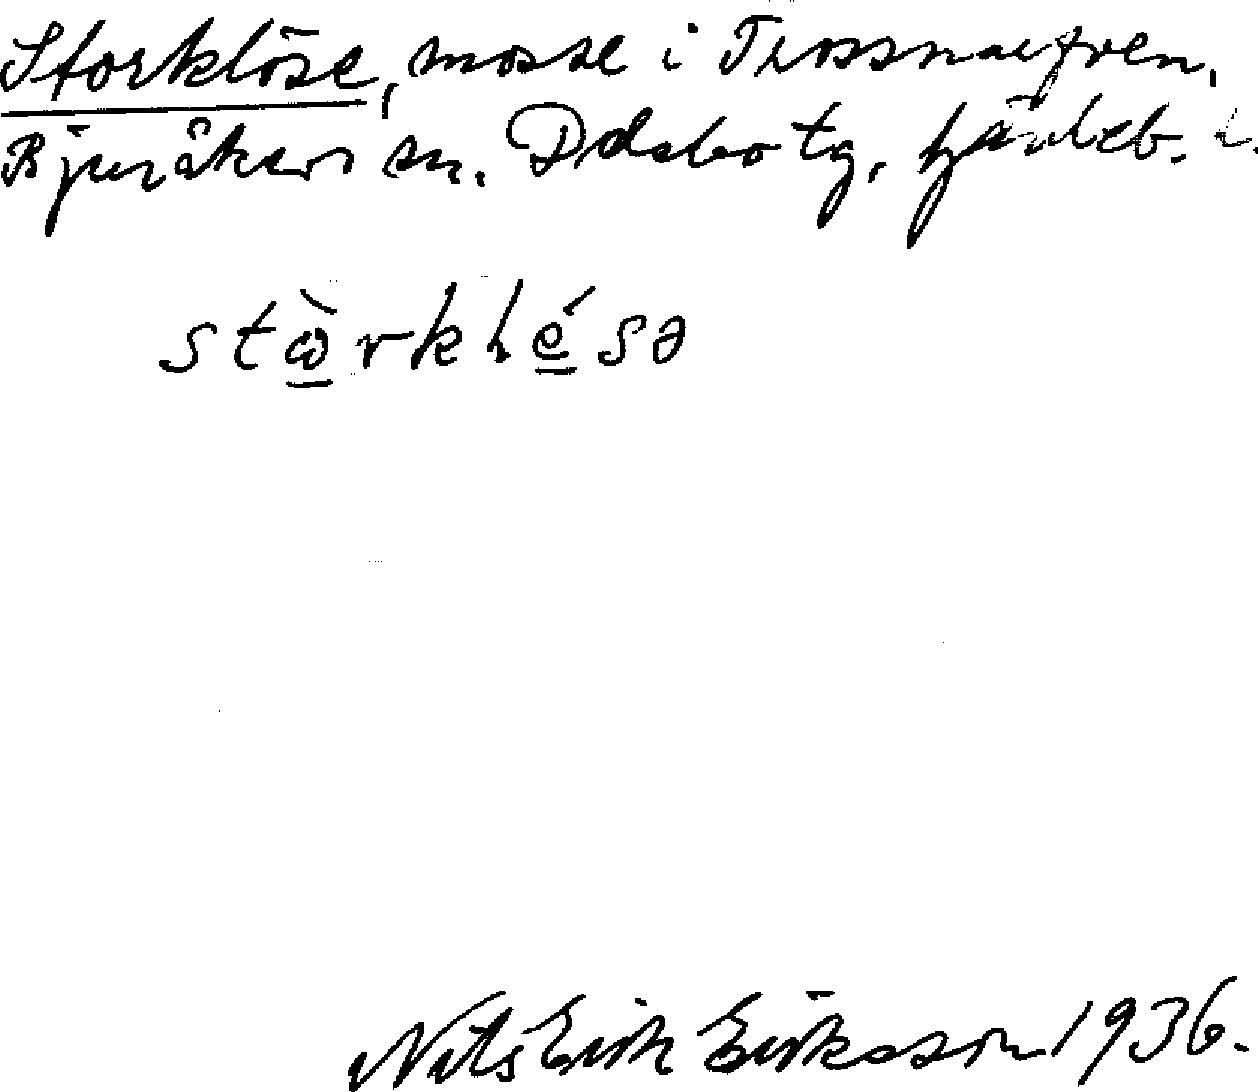 Storklöse, mosse i Trossnarfven.
Bjuråkers sn. Delsbo tg. Gävleb. l.
stὼ̲rkḷé̲sə
Nils Erik Eriksson 1936.